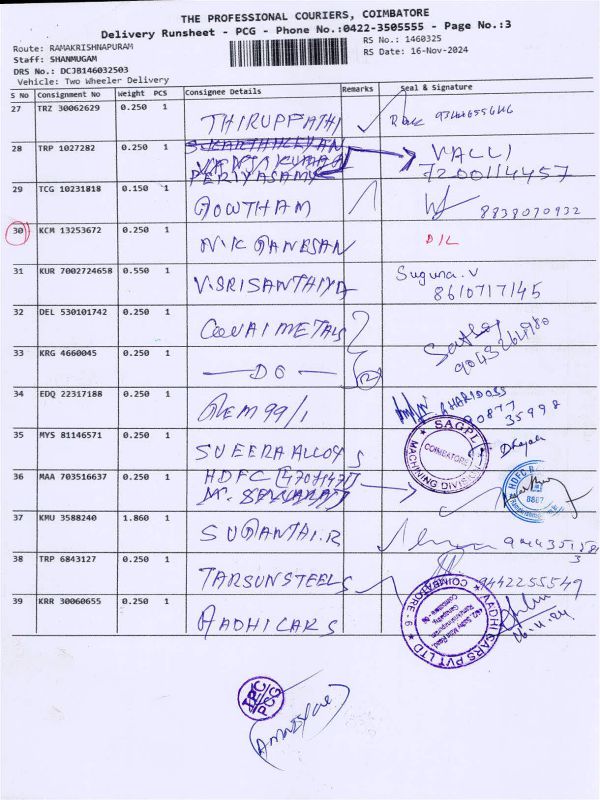 THE PROFESSIONAL COURIERS, COIMBATORE
Delivery Runsheet - PCG - Phone No.:0422-3505555 - Page No.:3
Route: RAMAKRISHNAPURAM RS No.: 1460325
Staff: SHANMUGAM RS Date: 16-Nov-2024
DRS No.: DCJB146032503
Vehicle: Two Wheeler Delivery
S No Consignment No Weight PCS Consignee Details Remarks Seal & Signature
27 TRZ 30062629 0.250 1 THIRUPPATHI
28 TRP 1027282 0.250 1
PERIYASAMY VALLI
7200114457
29 TCG 10231818 0.150 1 GOWTHAM 8838070932
30 KCM 13253672 0.250 1 N.K GANESAN D/L
31 KUR 7002724658 0.550 1 V.SRISANTHIYA Suguna.V
8610717145
32 DEL 530101742 0.250 1 COVAI METALS
33 KRG 4660045 0.250 1 DO
34 EDQ 22317188 0.250 1 GEM 99/1 HARIDOSS
90877
35998
35 MYS 81146571 0.250 1 SUEERA ALLOYS SAGPL
MACHINING DIVISION
COIMBATORE
36 MAA 703516637 0.250 1 HDFC
37 KMU 3588240 1.860 1 SUGANTAI.R
38 TRP 6843127 0.250 1 TARSUN STEELS 9442255549
39 KRR 30060655 0.250 1 AADHI CARS
AADHI CARS PVT LTD
COIMBATORE - 6
16.11.24
TPC
PCG